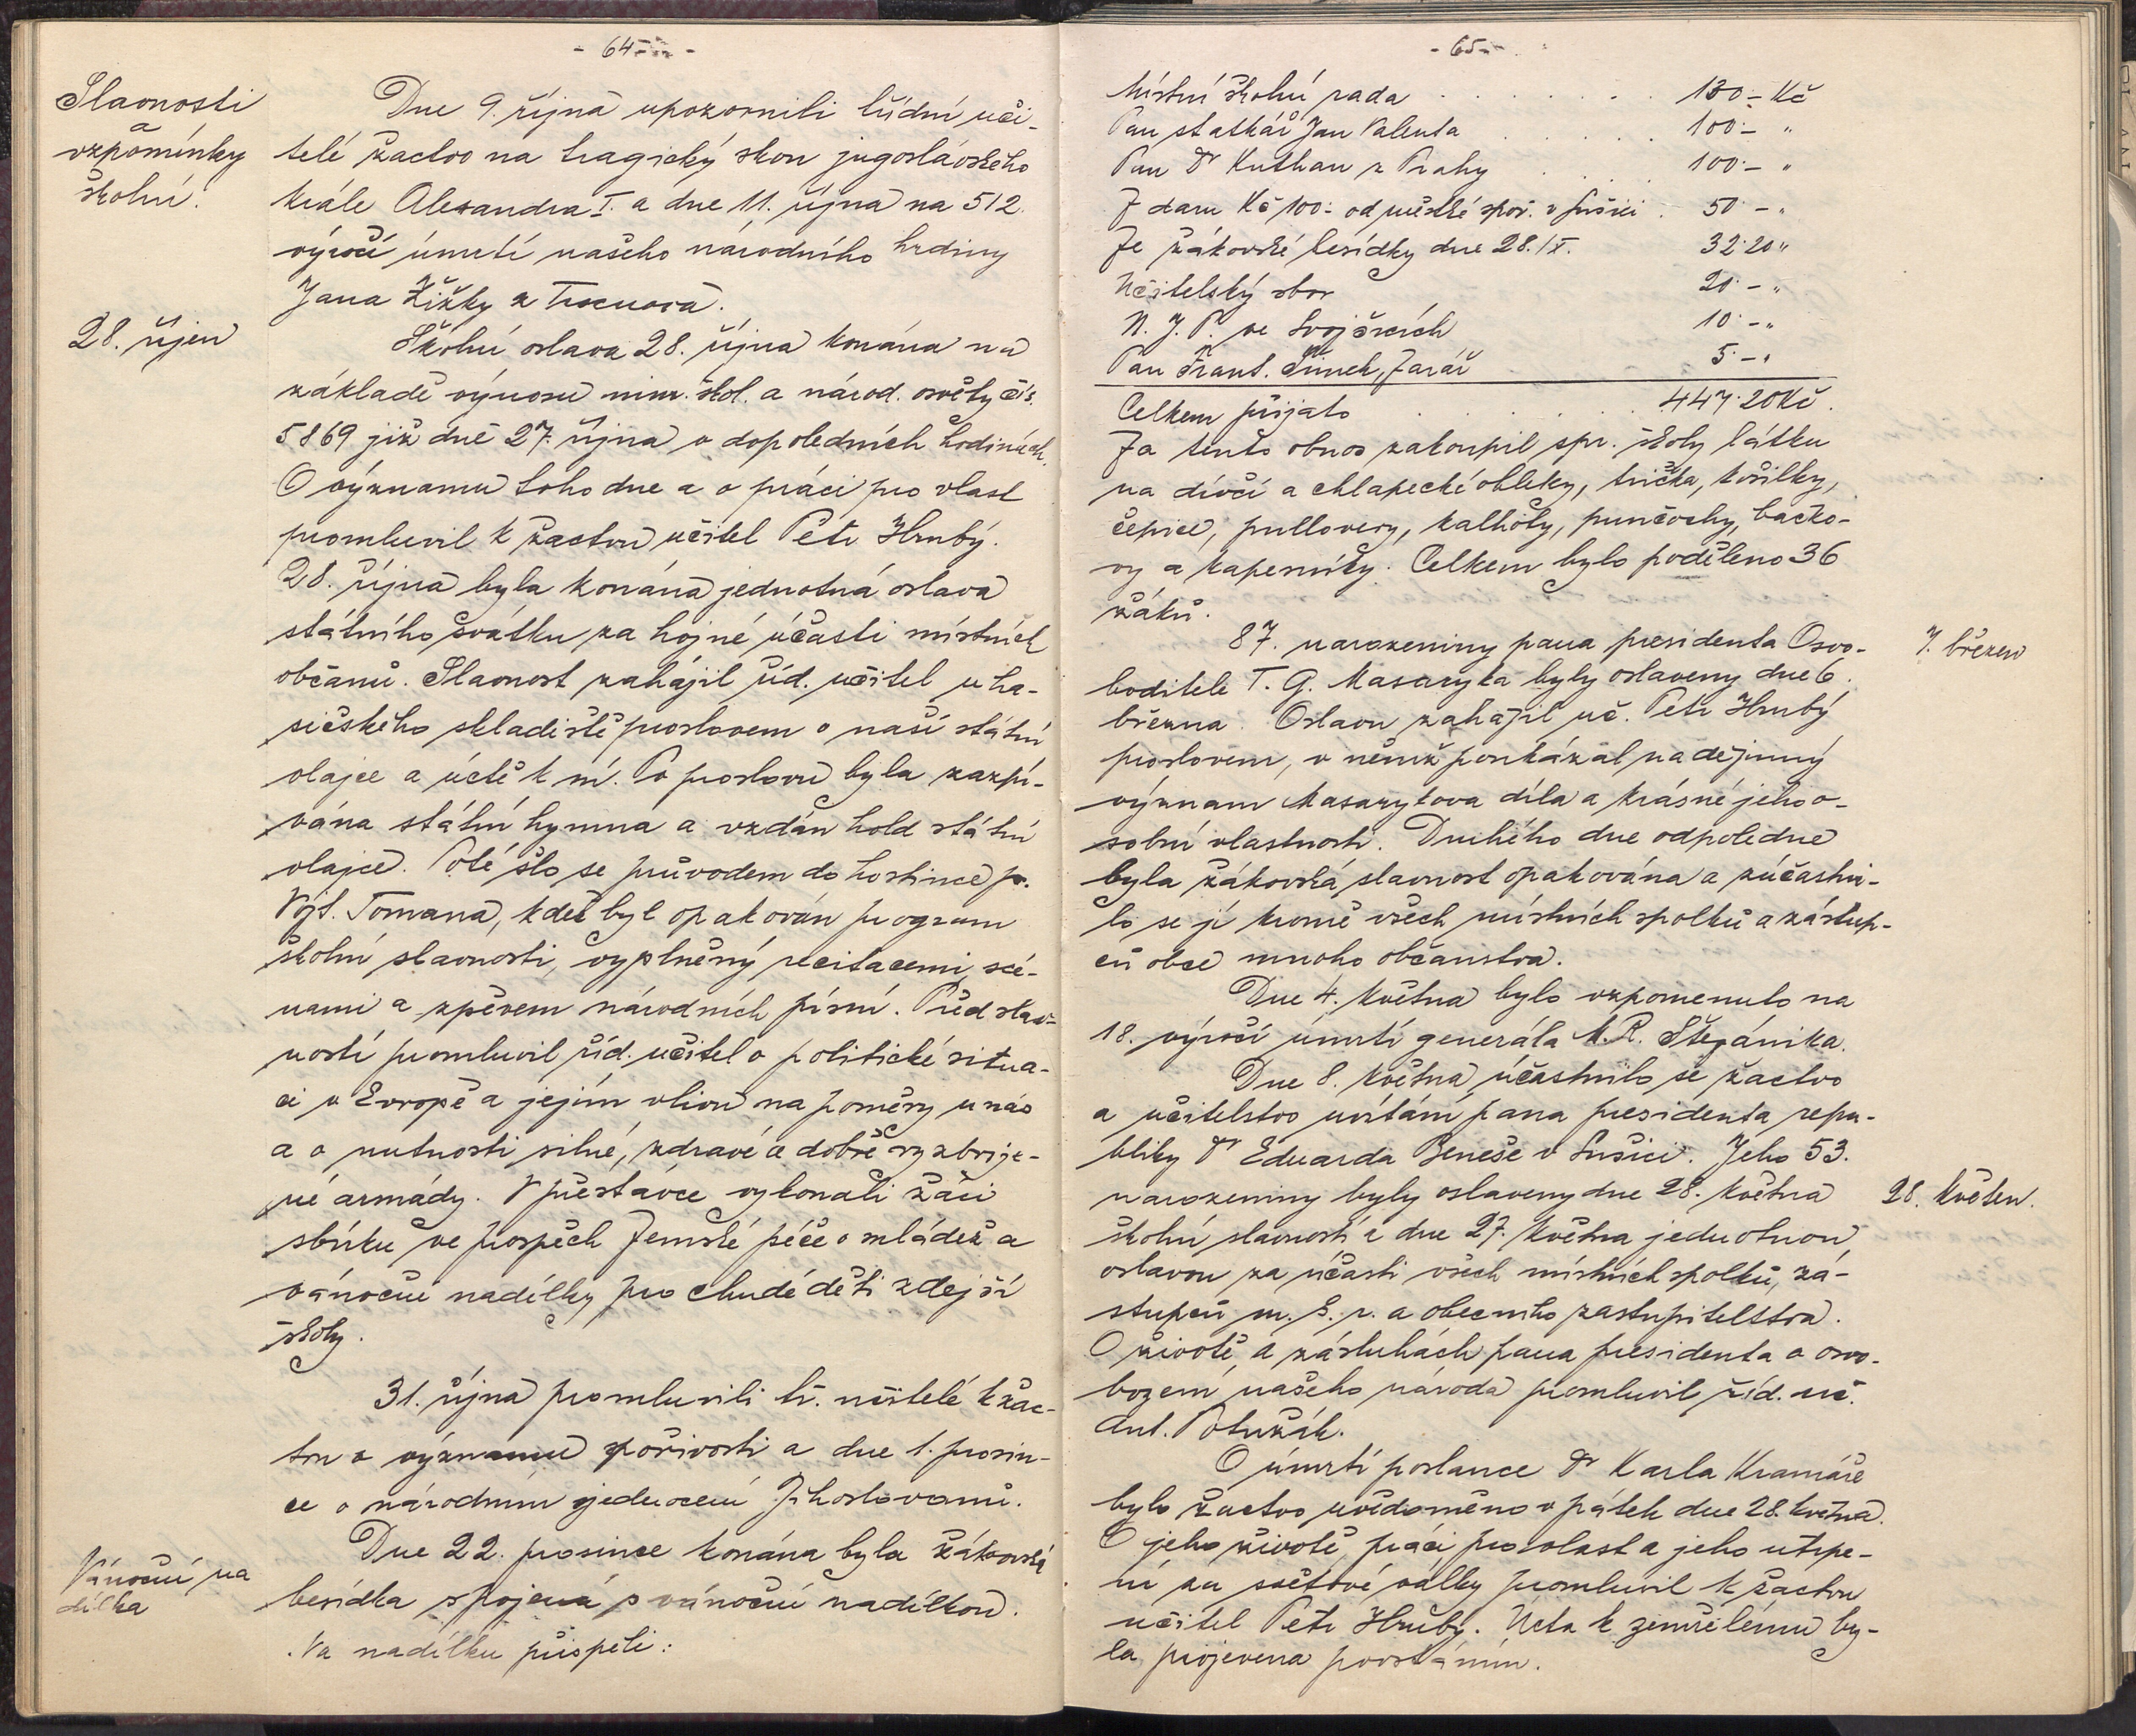 - 64 -
Slavnosti
a
vzpomínky
školní.
Dne 9. října upozornili třídní uči-
telé žactvo na tragický skon jugoslávského
krále Alexandra I. a dne 11. října na 512.
výročí úmrtí našeho národního hrdiny
Jana Žižky z Trocnova.
28. říjen
Školní oslava 28. října konána na
základě výnosu min. škol. a národ. osvěty čís.
5869 již dne 27. října v dopoledních hodinách.
O významu toho dne a o práci pro vlast
promluvil k žactvu učitel Petr Hrubý.
28. října byla konána jednotná oslava
státního svátku za hojné účasti místních
občanů. Slavnost zahájil říd. učitel u ha-
sičského skladiště proslovem o naší státní
vlajce a úctě k ní. Po proslovu byla zazpí-
vána státní hymna a vzdán hold státní
vlajce. Poté šlo se průvodem do hostince p.
Vojt. Tomana, kdež byl opakován program
školní slavnosti, vyplněný recitacemi, scé-
nami a zpěvem národních písní. Před slav-
ností promluvil říd. učitel o politické situa-
ci v Evropě a jejím vlivu na poměry u nás
a o nutnosti silné, zdravé a dobře vyzbroje-
né armády. V přestávce vykonali žáci
sbírku ve prospěch Zemské péče o mládež a
vánoční nadílky pro chudé děti zdejší
školy.
31. října promluvili tř. učitelé k žac-
tvu o významu spořivosti a dne 1. prosin-
ce o národním sjednocení Jihoslovanů.
Vánoční na
dílka
Dne 22. prosince konána byla žákovská
besídka spojená s vánoční nadílkou.
Na nadílku přispěli:
- 65 -
Místní školní rada . . . . . . 130.- Kč
Pan statkář Jan Valenta . . . . . 100.- "
Pan Dr Kuthan z Prahy . . . . 100.- "
Z daru Kč 100.- od městské spoř. v Sušici . 50.- "
Ze žákovské besídky dne 28./X. 32.20 "
Učitelský sbor 20.- "
N. J. P. ve Svojšicích 10.- "
Pan Frant. Šimek, farář 5.- "
Celkem přijato . . . . . . 447.20 Kč.
Za tento obnos zakoupil spr. školy látku
na dívčí a chlapecké obleky, trička, košilky,
čepice, pullovery, kalhoty, punčochy, bačko-
ry a kapesníky. Celkem bylo poděleno 36
žáků.
87. narozeniny pana presidenta Osvo-
7. březen
boditele T. G. Masaryka byly oslaveny dne 6.
března. Oslavu zahájil uč. Petr Hrubý
proslovem, v němž poukázal na dějinný
význam Masarykova díla a krásné jeho o-
sobní vlastnosti. Druhého dne odpoledne
byla žákovská slavnost opakována a zúčastni-
lo se jí kromě všech místních spolků a zástup-
ců obce mnoho občanstva.
Dne 4. května bylo vzpomenuto na
18. výročí úmrtí generála M. R. Štefánika.
Dne 8. května účastnilo se žactvo
a učitelstvo uvítání pana presidenta repu-
bliky Dr Eduarda Beneše v Sušici. Jeho 53.
narozeniny byly oslaveny dne 28. května
28. květen.
školní slavností a dne 27. května jednotnou
oslavou za účasti všech místních spolků, zá-
stupců m. š. r. a obecního zastupitelstva.
O životě a zásluhách pana presidenta o osvo-
bození našeho národa promluvil říd. uč.
Ant. Potužák.
O úmrtí poslance Dr Karla Kramáře
bylo žactvo uvědoměno v pátek dne 28. května.
O jeho životě, práci pro vlast a jeho utrpe-
ní za světové války promluvil k žactvu
učitel Petr Hrubý. Úcta k zemřelému by-
la projevena povstáním.